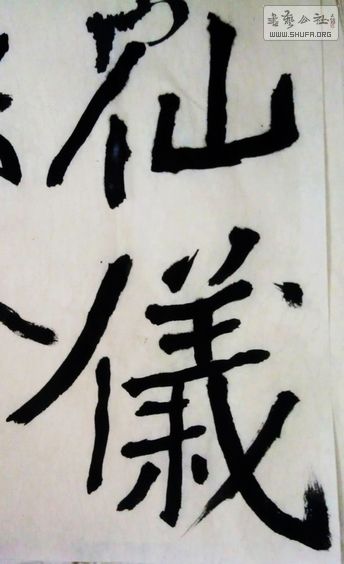 仙
儀
書藝公社
WWW.SHUFA.ORG